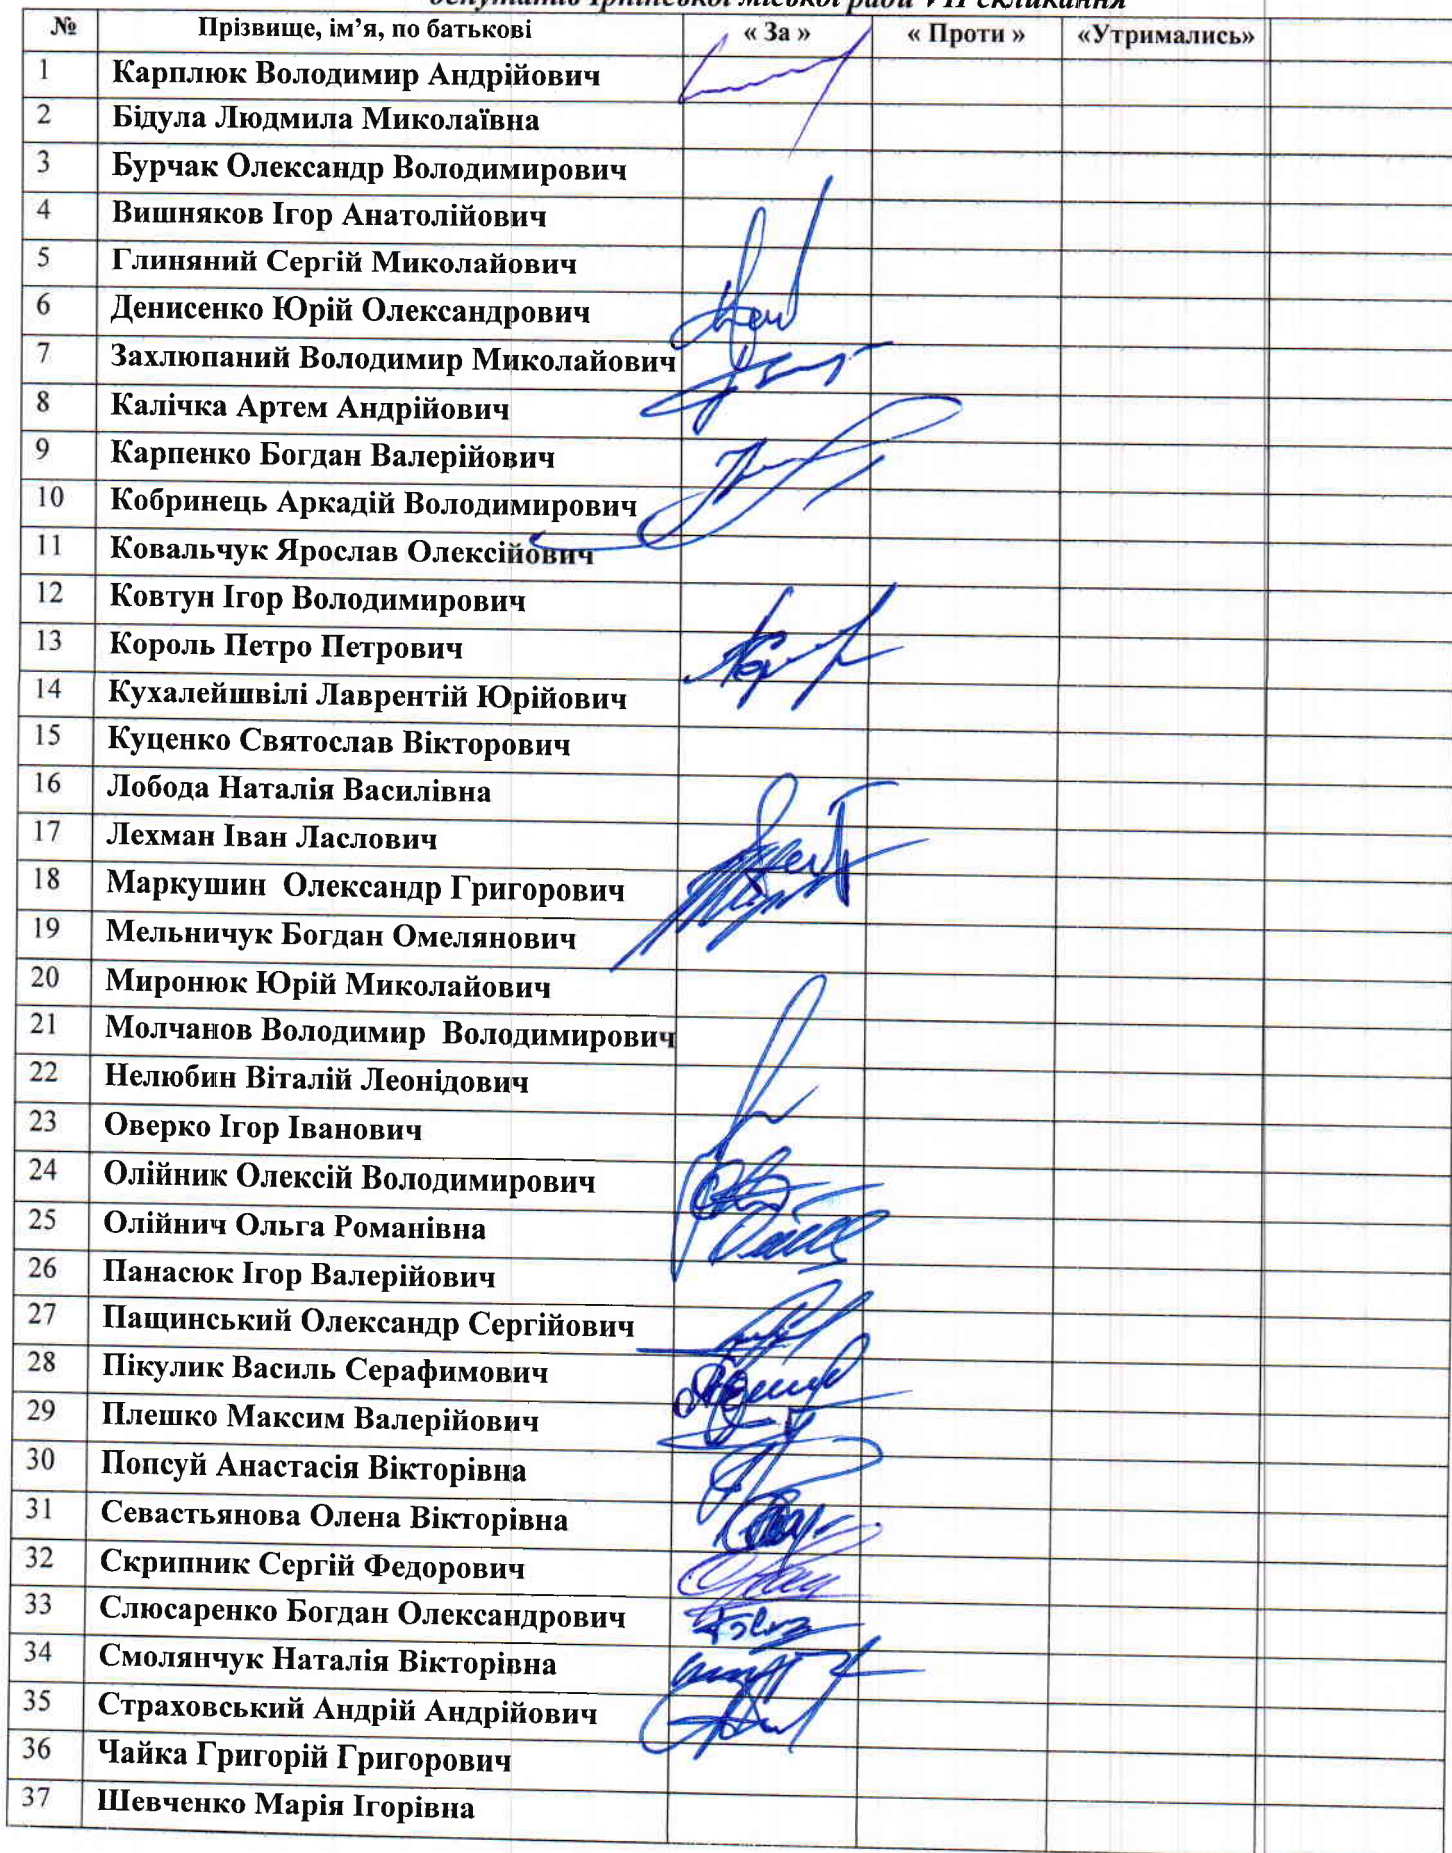 депутатів Ірпінської міської ради VII скликання
№ Прізвище, ім’я, по батькові « За » « Проти » «Утримались»
1 Карплюк Володимир Андрійович
2 Бідула Людмила Миколаївна
3 Бурчак Олександр Володимирович
4 Вишняков Ігор Анатолійович
5 Глиняний Сергій Миколайович
6 Денисенко Юрій Олександрович
7 Захлюпаний Володимир Миколайович
8 Калічка Артем Андрійович
9 Карпенко Богдан Валерійович
10 Кобринець Аркадій Володимирович
11 Ковальчук Ярослав Олексійович
12 Ковтун Ігор Володимирович
13 Король Петро Петрович
14 Кухалейшвілі Лаврентій Юрійович
15 Куценко Святослав Вікторович
16 Лобода Наталія Василівна
17 Лехман Іван Ласлович
18 Маркушин Олександр Григорович
19 Мельничук Богдан Омелянович
20 Миронюк Юрій Миколайович
21 Молчанов Володимир Володимирович
22 Нелюбин Віталій Леонідович
23 Оверко Ігор Іванович
24 Олійник Олексій Володимирович
25 Олійнич Ольга Романівна
26 Панасюк Ігор Валерійович
27 Пащинський Олександр Сергійович
28 Пікулик Василь Серафимович
29 Плешко Максим Валерійович
30 Попсуй Анастасія Вікторівна
31 Севастьянова Олена Вікторівна
32 Скрипник Сергій Федорович
33 Слюсаренко Богдан Олександрович
34 Смолянчук Наталія Вікторівна
35 Страховський Андрій Андрійович
36 Чайка Григорій Григорович
37 Шевченко Марія Ігорівна